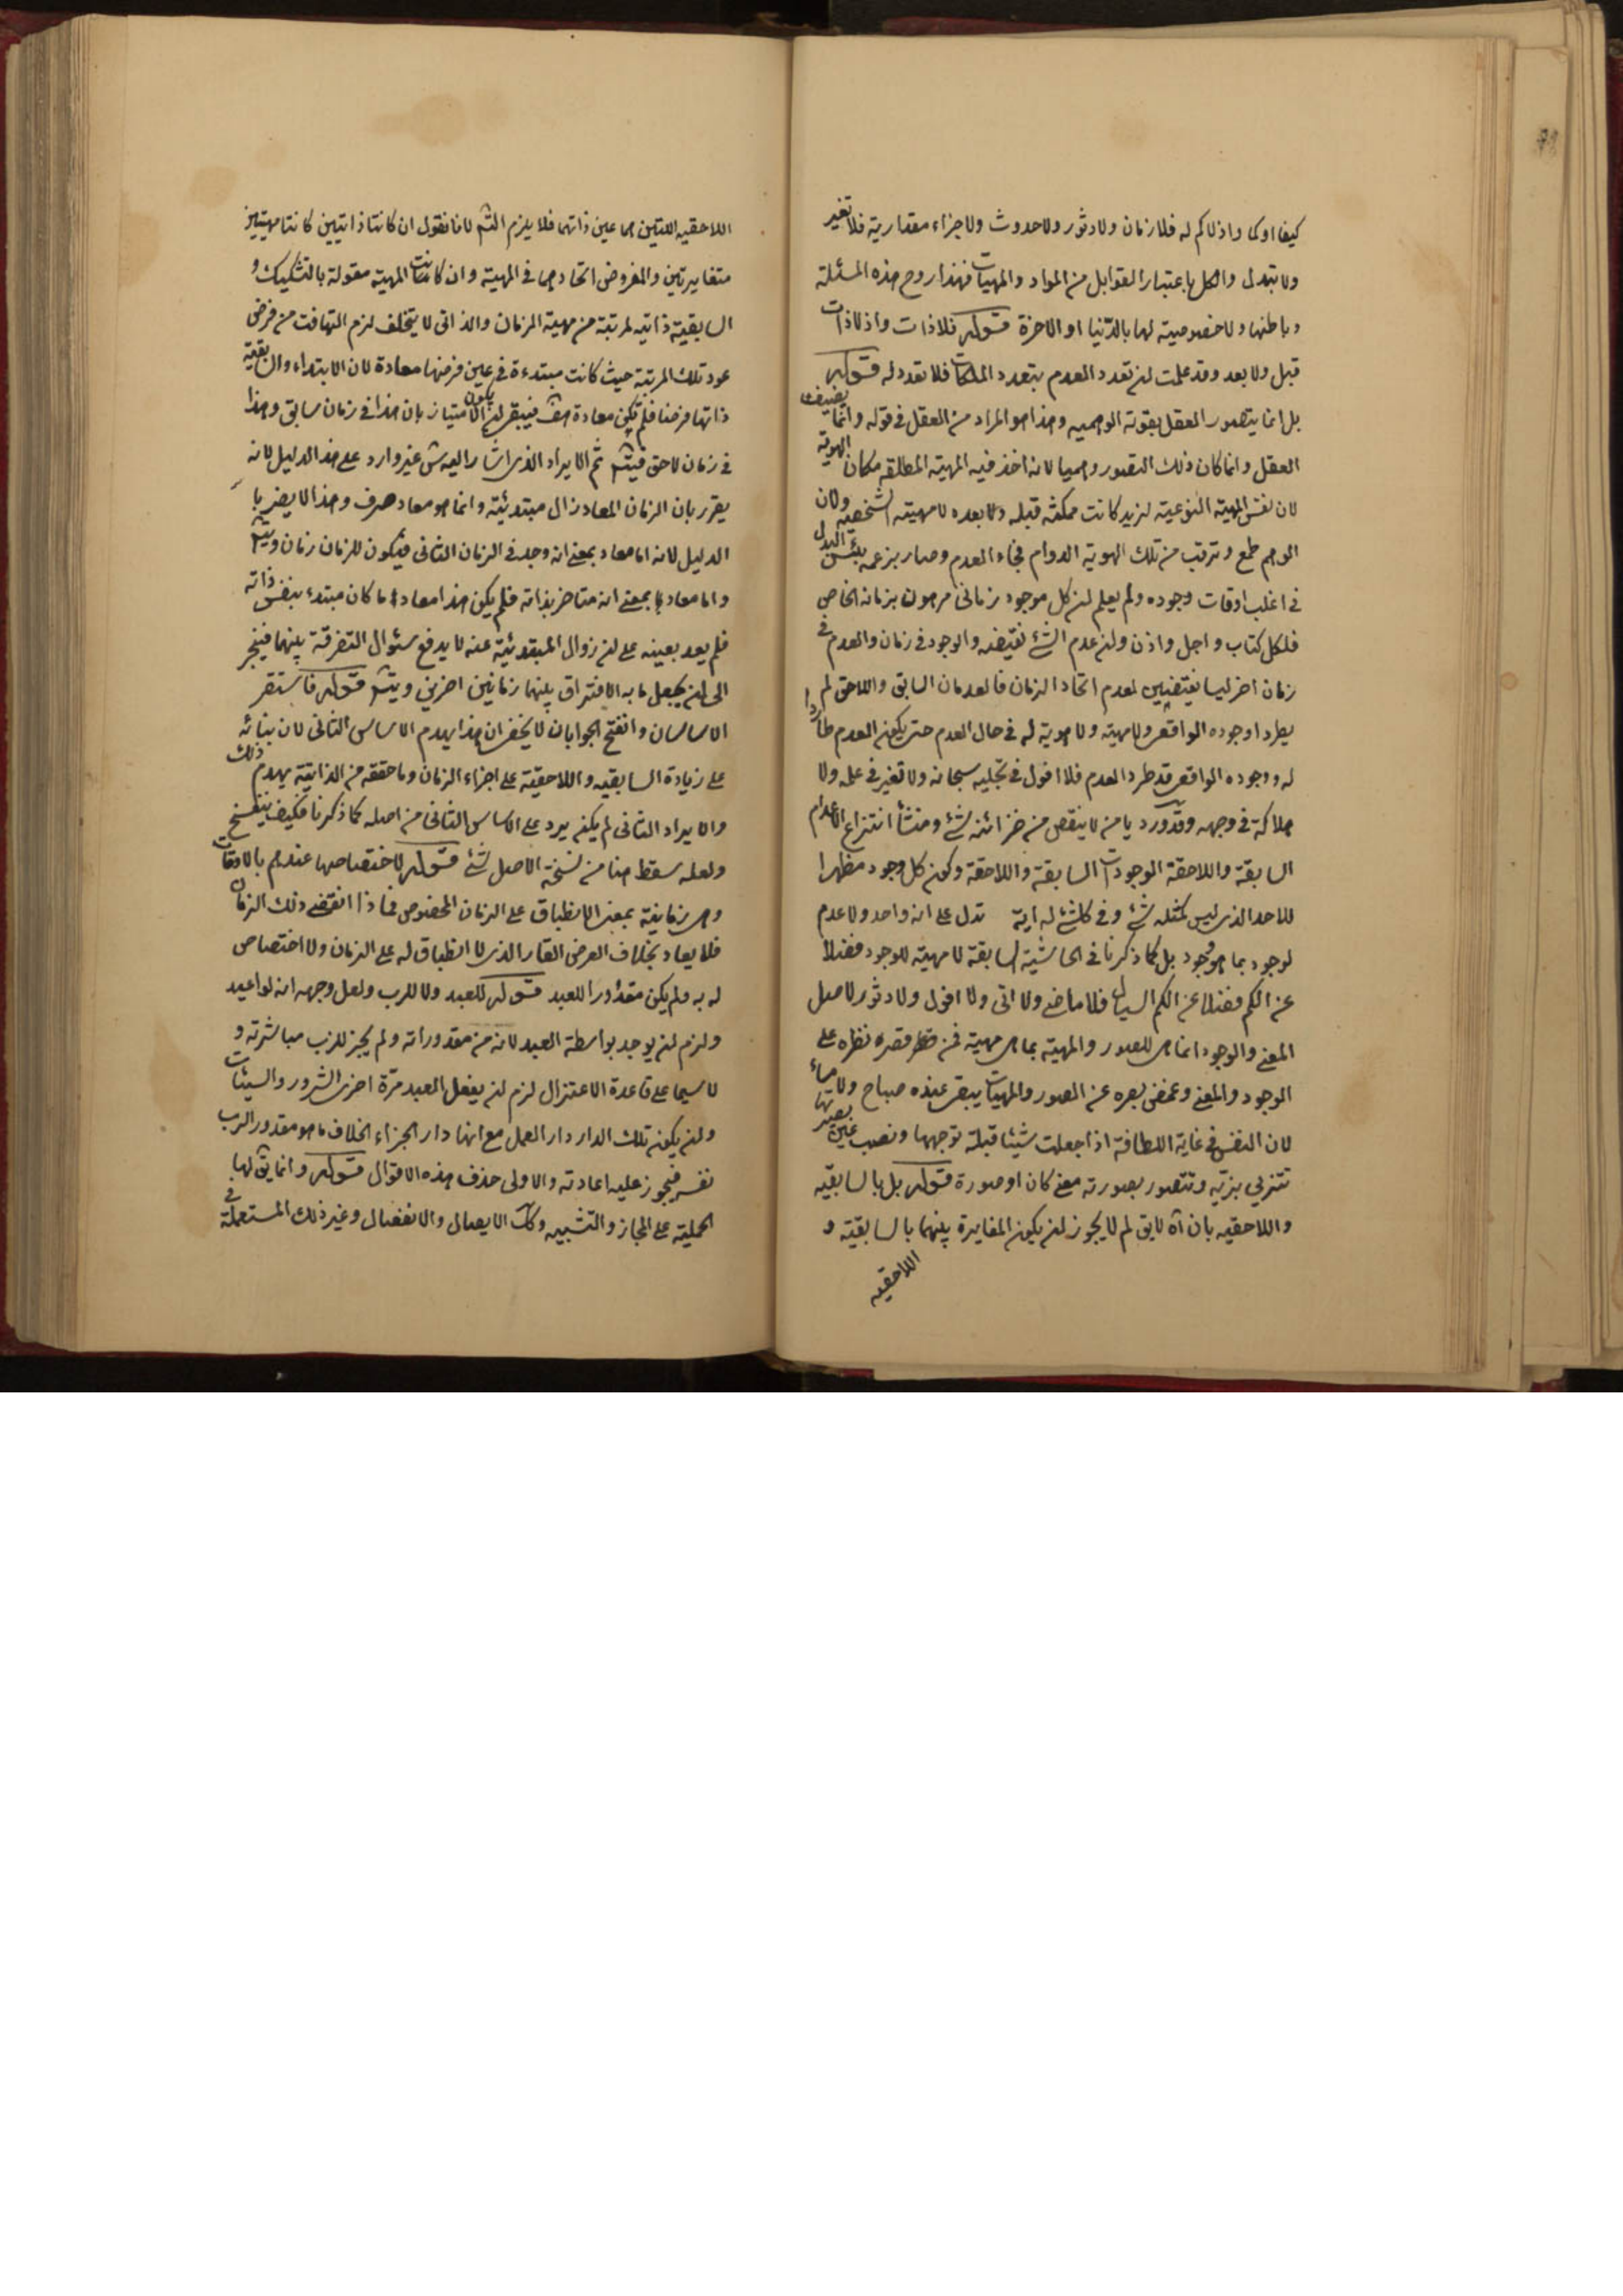 كيفا او كما واذ لا كم له فلا زمان ولا دثور ولا حدوث ولا جزاء مقدارية فلا تغير
ولا تبدل والكل باعتبار القوابل من المواد والمهيات فهذا روح هذه المسئلة
وباطنها ولا خصوصية لها بالدنيا او الاخرة قوله فلا ذات واذ لا ذات
قبل ولا بعد وقد علمت ان تعدد العدم بتعدد الملكات فلا تعدد له قوله
بل انما يتصور العقل بقوته الوهمية وهذا هو المراد من العقل فى قوله وانما يضيف
العقل وانما كان ذلك التصور وهميا لانه اخذ فيه المهية المطلقة مكان الهوية
لان نفس المهية النوعية لزيد كانت ممكنة قبله ولا بعده لا مهيته الشخصية ولان
الوهم طمع وترقب من تلك الهوية الدوام فجاء العدم وصار بزعمه بئس البدل
فى اغلب اوقات وجوده ولم يعلم ان كل موجود زمانى مرهون بزمانه الخاص
فلكل كتاب واجل واذن وان عدم الشئ نقيضه والوجود فى زمان والعدم فى
زمان اخر ليسا نقيضين لعدم اتحاد الزمان فالعدمان السابق واللاحق لم
يطردا وجوده الواقعى ولا مهية ولا هوية له فى حال العدم حتى يكون العدم طاردا
له ووجوده الواقعى قد طرد العدم فلا افول فى تجليه سبحانه ولا تغير فى علمه ولا
هلاكة فى وجهه وقد ورد يا من لا ينقص من خزائنه شئ ومنشأ انتزاع الاعدام
السابقة واللاحقة الموجودات السابقة واللاحقة وكون كل وجود مظهرا
للاحد الذى ليس كمثله شئ وفى كل شئ له اية تدل على انه واحد ولا عدم
لوجود بما هو وجود بل كما ذكرنا فى الحاشية السابقة لا مهية للوجود فضلا
عن الكم فضلا عن الكم السيال فلا ماضى ولا اتى ولا افول ولا دثور لاصل
المعنى والوجود انما هى للصور والمهية بما هى مهية فمن قصره نظره على
الوجود والمعنى وغمض بصره عن الصور والمهيات يبقى عنده صباح ولا مساء
لان النفس فى غاية اللطافة اذا جعلت شيئا قبلة توجهها ونصب عين بصيرتها
تتزيى بزيه وتتصور بصورته معنى كان او صورة قوله بل بالسابقية
واللاحقية بان اه لا يق لم لا يجوز ان يكون المغايرة بينهما بالسابقية و
اللاحقية
اللاحقيه اللتين هما عين ذاتهما فلا يلزم التس لانا نقول ان كانتا ذاتيين كانتا مهيتين
متغايرتين والمفروض اتحادهما فى المهية وان كانت المهية مقولة بالتشكيك و
السابقية ذاتيه لمرتبة من مهية الزمان والذاتى لا يتخلف لزم التهافت من فرض
عود تلك المرتبة حيث كانت مبتدءة فى عين فرضها معادة لان الابتداء والسابقية
ذاتها فرضا فلم يكن معادة هف فيبقى ان يكون الامتياز بان هذا فى زمان سابق وهذا
فى زمان لاحق فيتس ثم الايراد الذى اشار اليه ش غير وارد على هذا الدليل لانه
يقرر بان الزمان المعاد زال مبتدئيته وانما هو معاد صرف وهذا لا يضر با
الدليل لانه اما معاد بمعنى انه وجد فى الزمان الثانى فيكون للزمان زمان ويتس
واما معاد بمعنى انه متاخر بذاته فلم يكن هذا معادا ما كان مبتدء بنفس ذاته
فلم يعد بعينه على ان زوال المبتدئية عنه لا يدفع سئوال التفرقة بينهما فينجر
الى ان يجعل ما به الافتراق بينهما زمانين اخرين ويتس قوله فاستقر
الاساسان وانفتح الجوابان لا يخفى ان هذا يهدم الاساس الثانى لان بنائه
على زيادة السابقيه واللاحقية على اجزاء الزمان وما حققه من الذاتية يهدم ذلك
والايراد الثانى لم يكن يرد على الاساس الثانى من اصله كما ذكرنا فكيف ينفسخ
ولعله سقط هنا من نسخة الاصل شئ قوله لاختصاصها عندهم بالاوقات
وهى زمانية بمعنى الانطباق على الزمان المخصوص فاذا انقضى ذلك الزمان
فلا يعاد بخلاف العرض القار الذى لا انطباق له على الزمان ولا اختصاص
له به ولم يكن مقدورا للعبد قوله للعبد ولا للرب ولعل وجهه انه لو اعيد
ولزم ان يوجد بواسطة العبد لانه من مقدوراته ولم يجز للرب مباشرته و
لا سيما على قاعدة الاعتزال لزم ان يفعل العبد مرة اخرى الشرور والسيئات
وان يكون تلك الدار دار العمل مع انها دار الجزاء الخلاف ما هو مقدور الرب
نفسه فيجوز عليه اعادته والاولى حذف هذه الاقوال قوله وانما يق لها
الحملية على المجاز والتشبيه وكك الايصال والانفصال وغير ذلك المستعملة فى